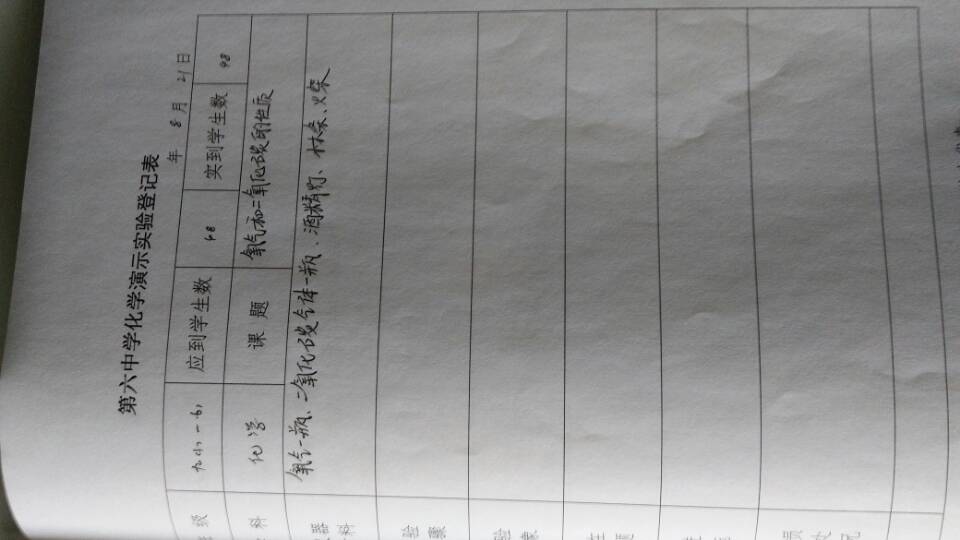 第六中学化学演示实验登记表
年 8月 21日
级 应到学生数 48 实到学生数 48
科 化学 课题 氧气和二氧化碳的性质
器 氧气一瓶、二氧化碳气体一瓶、酒精灯、木条、火柴
科
验
骤
验
况